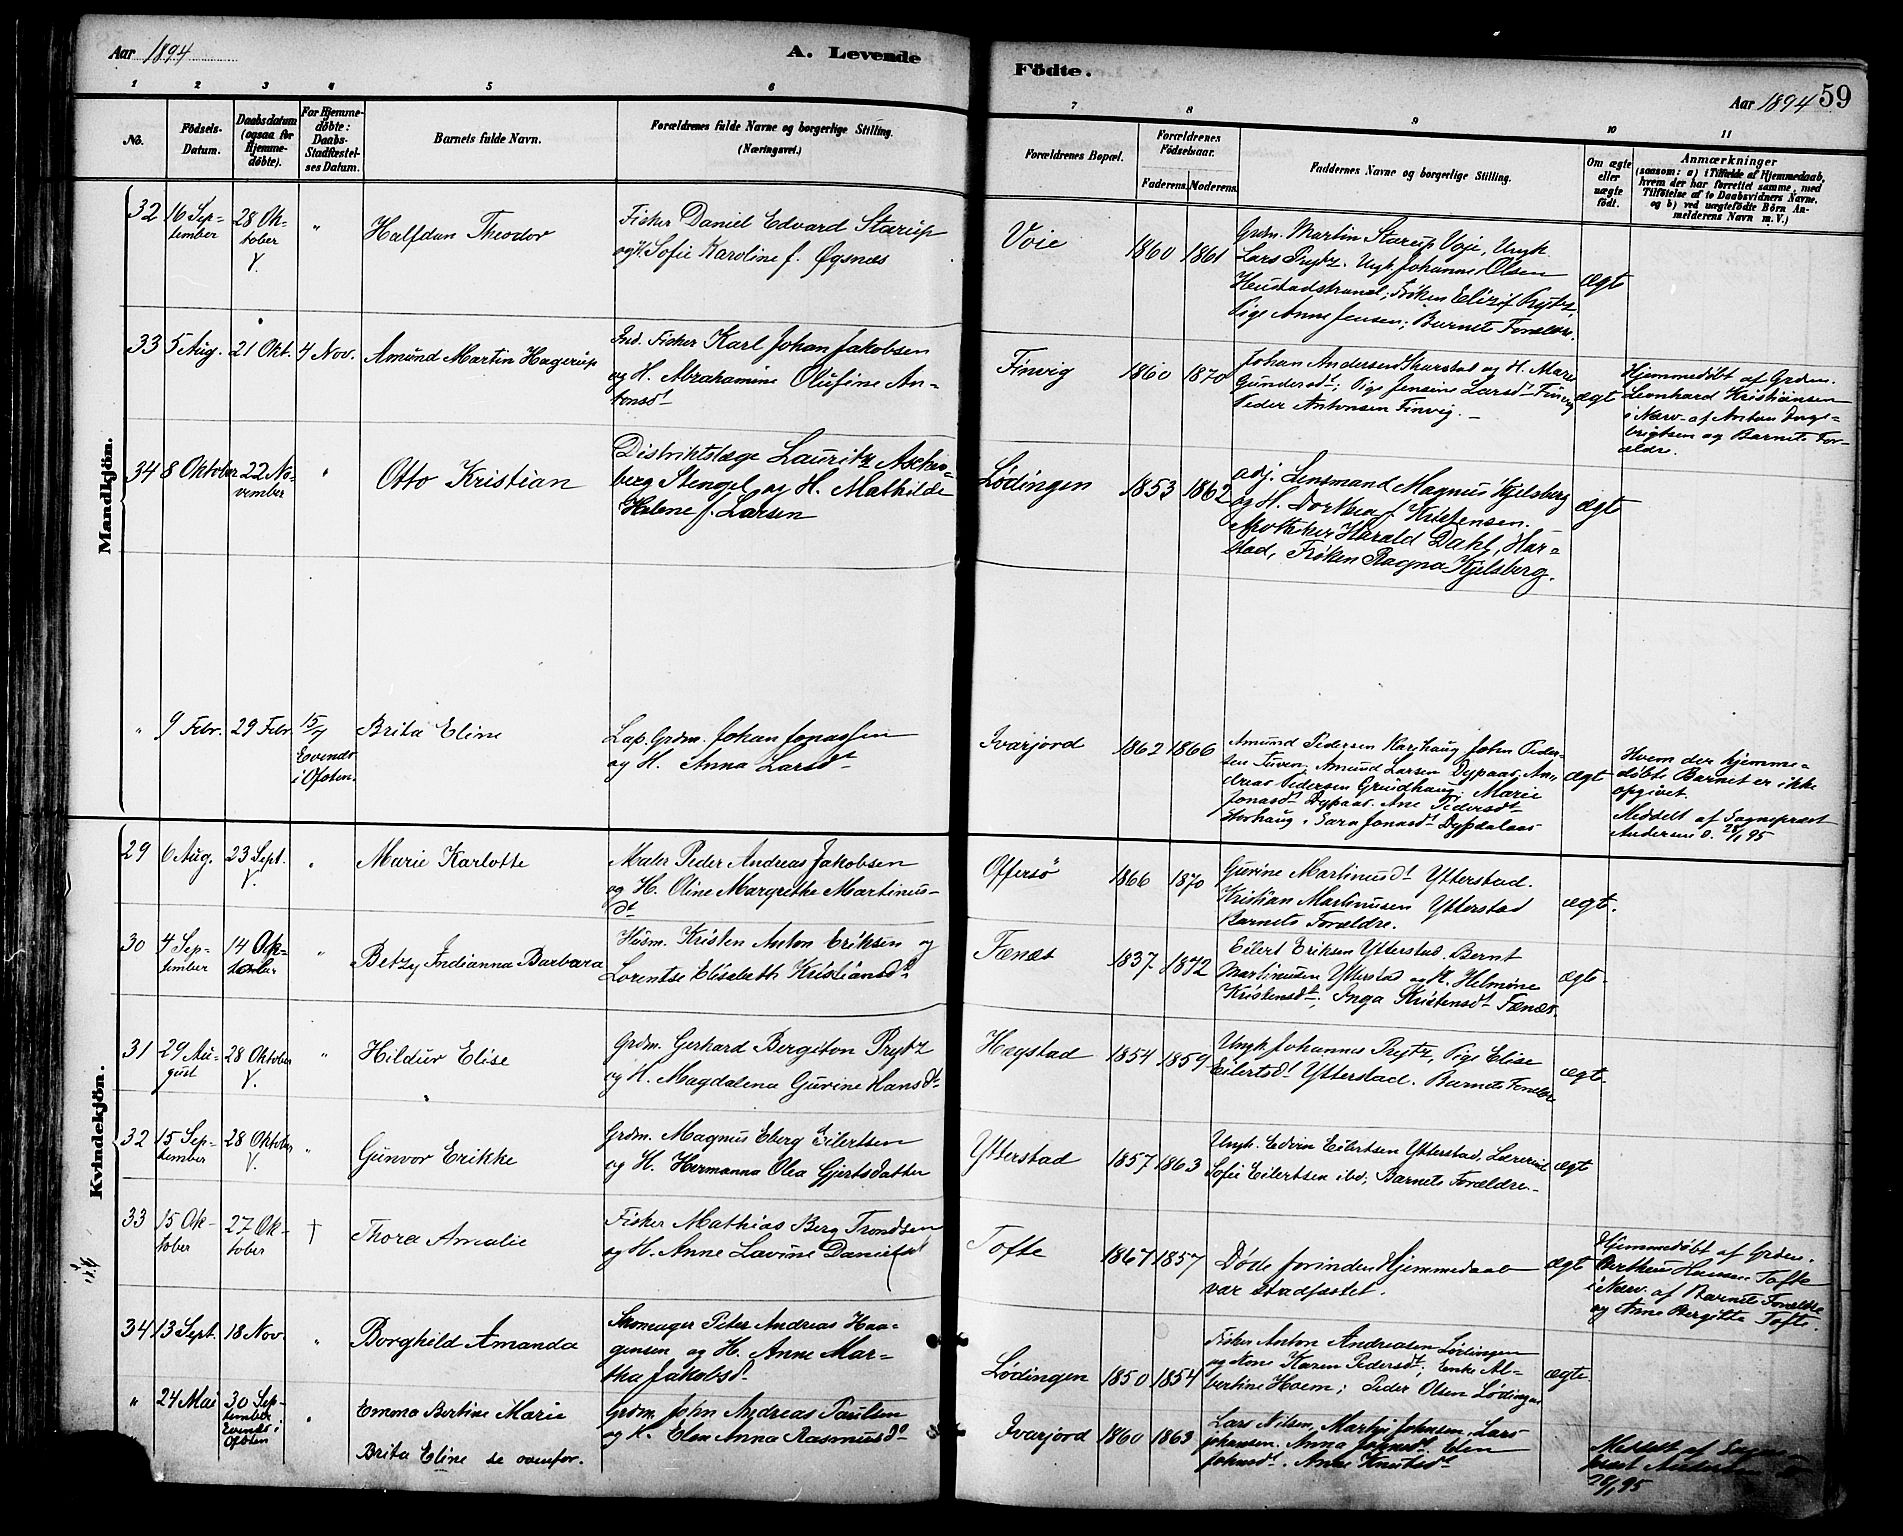 Aar 1894
A. Levende
Födte.
Aar 1894 59
1 2 3 4 5 6 7 8 9 10 11
No.
Födsels-
Datum.
Daabsdatum
(ogsaa for
Hjemme-
döbte).
For Hjemme-
döbte:
Daabs-
Stadfæstel-
ses Datum.
Barnets fulde Navn.
Forældrenes fulde Navne og borgerlige Stilling.
(Næringsvei.)
Forældrenes Bopæl.
Forældrenes
Födselsaar.
Faderens. Moderens.
Faddernes Navne og borgerlige Stilling.
Om ægte
eller
uægte
født.
Anmærkninger
(saasom: a) i Tilfælde af Hjemmedaab,
hvem der har forrettet samme, med
Tilföielse af to Daabsvidners Navne,
og b) ved uægtefödte Börn An-
melderens Navn m. V.)
Mandkjön.
32
16 Sep-
tember
28 Ok-
tober
V.
"
Halfdan Theodor
Fisker Daniel Edvard Starup
og H. Sofie Karoline f. Øgsnæs
Voie
1860 1861
Grdm. Martin Starup Voje, Ungk.
Lars Prytz. Ungk. Johannes Olsen
Heustadstrand; Frøken Elizif Prytz,
Pige Anne Jensen; Barnets Forældre.
ægt
33
5 Aug.
21 Okt.
4 Nov.
Amund Martin Hagerup
Ind. Fisker Karl Johan Jakobsen
og H. Abrahamine Olufine An-
tonsdt
Finvig
1860 1870
Johan Andersen Skarstad og H. Marie
Gundersdt; Pige Jensine Larsdt Finvig
Peder Antonsen Finvig. –
ægt
Hjemmedøbt af Grdm.
Leonhard Kristiansen
i Nærv. af Anton Inge-
brigtsen og Barnets For-
ældre.
34
8 Oktober
22 No-
vember
"
Otto Kristian
Distriktslæge Lauritz Ascha-
berg Stengel og H. Mathilde
Helene f. Larsen
Lødingen
1853 1862
adj. Lensmand Magnus Kjelsberg
og H. Dorthea f. Kristensen.
Apotheker Harald Dahl, Har-
stad, Frøken Ragna Kjelsberg.
ægt
"
9 Febr.
29 Febr.
15/7
Evenes
i Ofoten.
Brita Eline
Lap. Grdm. Johan Jonassen
og H. Anna Larsdt
Ivarjord
1862 1866
Amund Pedersen Karihaug John Peder-
sen Tuven. Amund Larsen Dypaas. An-
dreas Pedersen Grundhaug. Marie
Jonasdt Dypaas. Ane Pedersdt
Storhaug, Sara Jonasdt Dypdalaas
ægt
Hvem der hjemme-
døbte Barnet er ikke
opgivet.
Meddelt af Sognepræst
Andersen d. 28/1 95
Kvindekjön.
29
6 Aug.
23 Sept.
V.
"
Marie Karlotte
Maler Peder Andreas Jakobsen
og H. Oline Margrethe Martinus-
dt
Offersø
1866 1870
Gurine Martinusdt Ytterstad.
Kristian Martinusen Ytterstad
Barnets Forældre.
ægt.
30
4 Sep-
tember
14 Ok-
tober
"
Betzy Indianna Barbara
Husm. Kristen Anton Eriksen og
Lorentse Elisabeth Kristiansdt
Fænæs
1837. 1872
Eilert Eriksen Ytterstad. Bernt
Martinusen Ytterstad og H. Helmine
Kristensdt; Inga Kristensdt Fænæs.
ægte.
31
29 Au-
gust
28 Oktober
V.
"
Hildur Elise
Grdm. Gerhard Bergiton Prytz
og H. Magdalena Gurine Hansdt
Hægstad
1854 1859
Ungk Johannes Prytz, Pige Elise
Eilertsdt Ytterstad. Barnets Forældre
ægt.
32
15 Sep-
tember
28 Oktober
V.
"
Gunvor Erikke
Grdm. Magnus Eberg Eilertsen
og H. Hermanna Olea Gjertsdatter
Ytterstad
1857 1863
Ungk. Edvin Eilertsen Ytterstad, Lærerinde
Sofie Eilertsen ibd; Barnets Forældre.
ægt
33
15 Ok-
tober
27 Ok-
tober
†
Thora Amalie
Fisker Mathias Berg Trondsen
og H. Anne Lavine Danielsdt
Tofte
1867 1857
Døde forinden Hjemmedaab
var stadfæstet.
ægt
Hjemmedøbt af Grdm.
Bertheus Hansen Tofte
i Nærv. af Barnets Forældre
og Anne Bergitte Tofte.
34
13 Sept.
18 Nov.
"
Borghild Amanda
Skomager Peter Andreas Haa-
gensen og H. Anne Mar-
tha Jakobsdt
Lødingen
1850 1854
Fisker Anton Andreasen Lødingen
og Kone Karen Pedersdt; Enke Al-
bertine Hoem; Peder Olsen Lødingen
ægte
"
24 Mai
30 Sep-
tember
Evenes i
Ofoten
"
Emma Bertine Marie
Grdm. John Andreas Paulsen
og H. Elen Anna Rasmusdt
Ivarjord
1860 1863
Lars Nilsen, Marthje Johnsen, Lars
Johansen. Anna Johnsdt. Elen
Johnsdt. Anne Knutsdt
Meddelt af Sogne-
præst Andersen
28/1 95
Brita Eline se ovenfor.